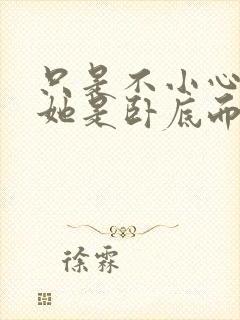 只是不小心
她是卧底而
徐霖